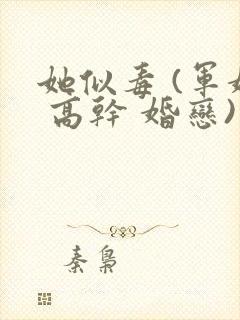 她似毒(軍婚
高幹 婚戀)
秦梟